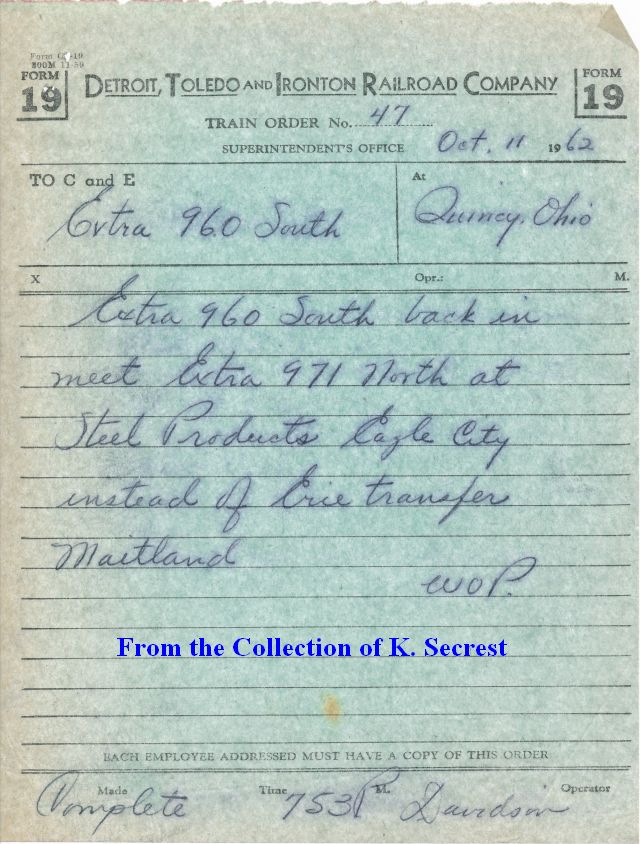 Form CT-19
800M 11-59
FORM
19
DETROIT, TOLEDO AND IRONTON RAILROAD COMPANY
FORM
19
TRAIN ORDER No. 47
SUPERINTENDENT'S OFFICE Oct. 11 1962
TO C and E
At
Extra 960 South
Quincy, Ohio
X Opr.: M.
Extra 960 South back in
meet Extra 971 North at
Steel Products Eagle City
instead of Erie transfer
Maitland
WOP.
From the Collection of K. Secrest
EACH EMPLOYEE ADDRESSED MUST HAVE A COPY OF THIS ORDER
Made Time M. Operator
Complete 753P Davidson